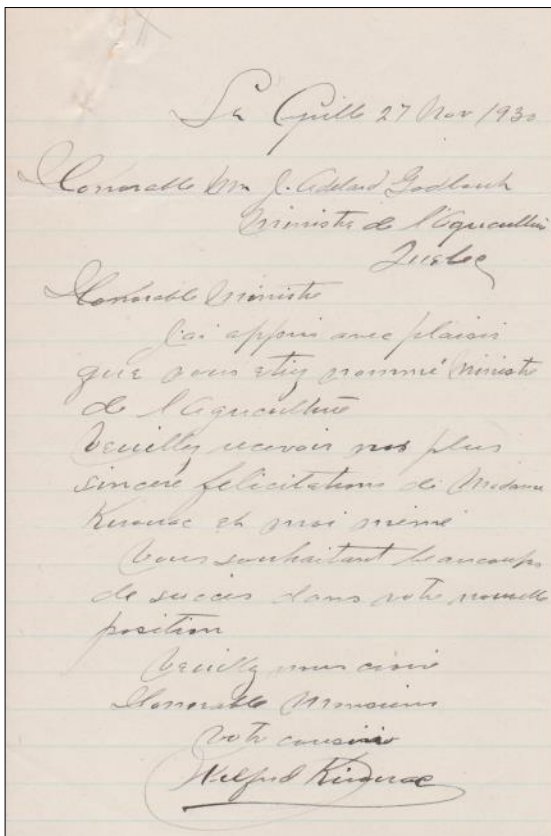 La Grille 27 Nov 1930
Honorable Mr J. Adelard Godbout
Ministre de l'Agriculture
Quebec
Honorable Ministre
J'ai appris avec plaisir
que vous etiez nommé Ministre
de l'Agriculture
Veuillez recevoir nos plus
sincere felicitations de Madame
Kirouac et moi même
Vous souhaitant beaucoups
de succès dans votre nouvelle
position
Veuillez nous croire
Honorable Monsieur
Votre cousin
Wilfred Kirouac